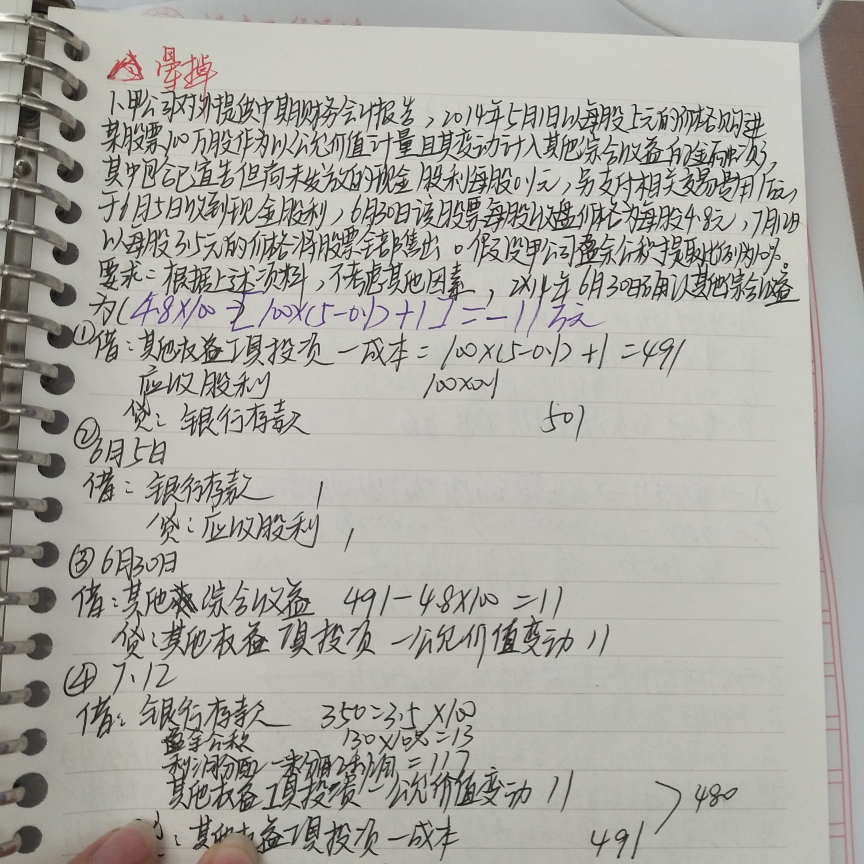 晕掉
1、甲公司对外提供中期财务会计报告，2014年5月1日以每股5元的价格购进
某股票100万股作为以公允价值计量且其变动计入其他综合收益的金融资产，
其中包含已宣告但尚未发放的现金股利每股0.1元，另支付相关交易费用1万元，
于6月5日收到现金股利，6月30日该股票每股收盘价格为每股4.8元，7月12日
以每股3.5元的价格将股票全部售出。假设甲公司盈余公积提取比例为10%。
要求：根据上述资料，不考虑其他因素，2x14年6月30日确认其他综合收益
为( 4.8×100-[100×(5-0.1)+1]=-11万元
①借：其他权益工具投资—成本=100×(5-0.1)+1=491
应收股利 100×0.1
贷：银行存款 501
②6月5日
借：银行存款 1
贷：应收股利 1
③6月30日
借：其他综合收益 491-4.8×100=11
贷：其他权益工具投资—公允价值变动 11
④7.12
借：银行存款 350=3.5×100
盈余公积 130×10%=13
利润分配—未分配利润=117
其他权益工具投资—公允价值变动 11 480
：其他权益工具投资—成本 491